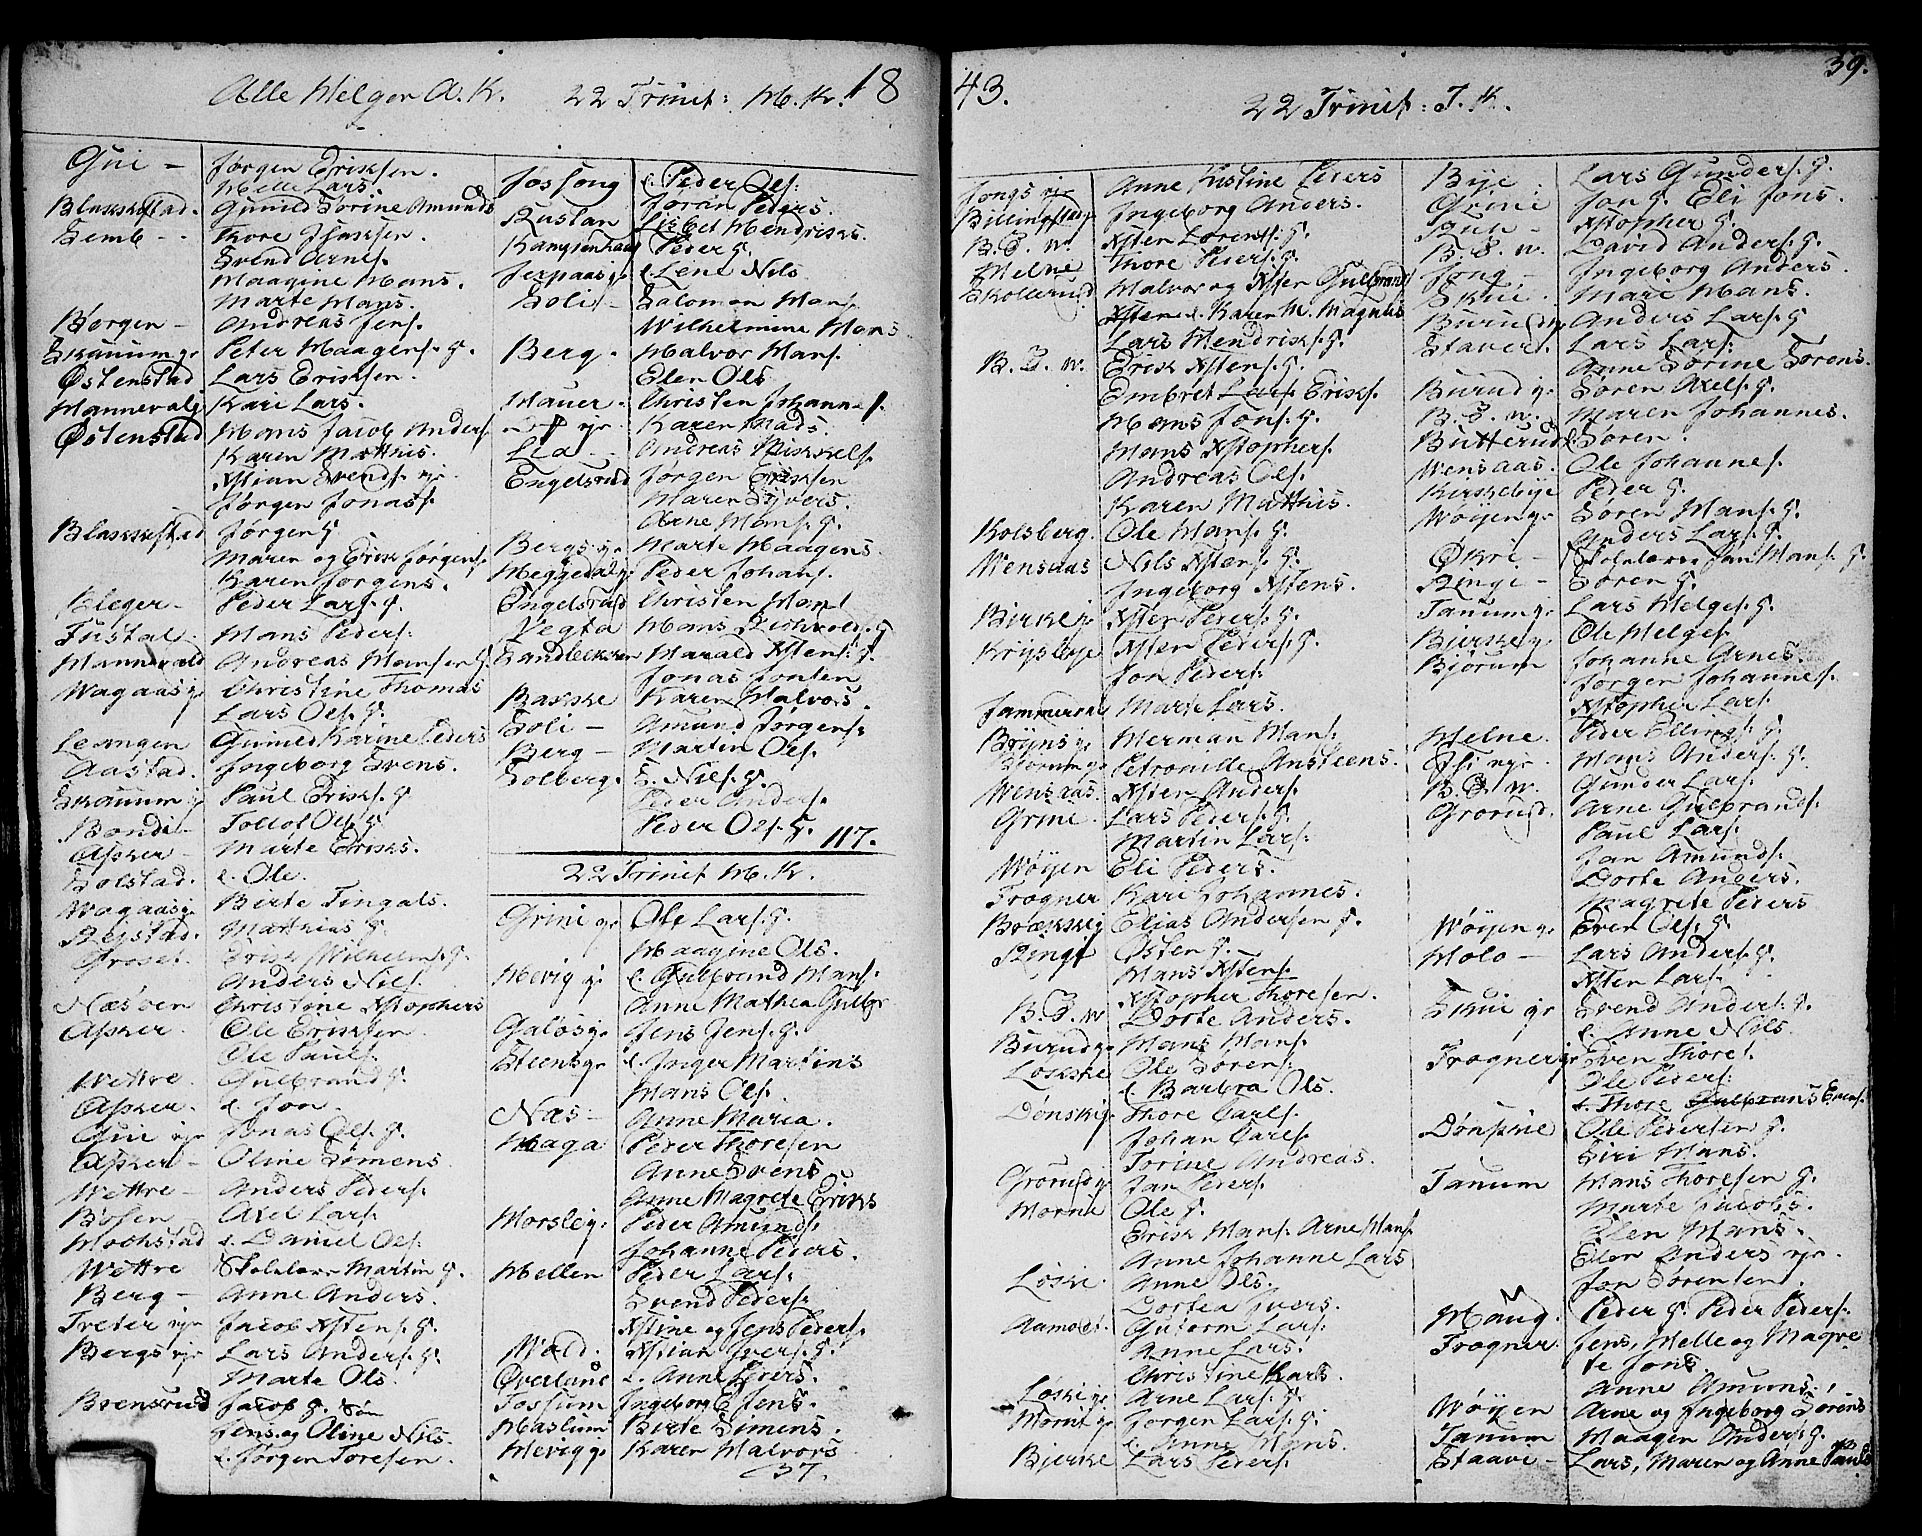 Alle Helgen A. K. 22 Trinit: H. K. 18
Gui - Jørgen Eriksen.
Helle Lars.
Blakkestad. Gunild Torine Amunds
Semb - Thore Isaksen.
Svend Arnes.
Haagine Hans.
Marte Hans.
Børgen - Andreas Jens.
Skauum gr Peter Haagens. G.
Østenstad Lars Eriksen.
Hannevalg Kari Lars.
Østenstad Hans Jacob Anders.
Karen Matthis.
Xstian Svends.
Jørgen Jonass.
Blakkestad Jørgen G.
Maren og Erik Jørgens.
Karen Jørgens.
Bleger - Peder Lars. G.
Tustal - Hans Peders.
Hannevald Andreas Hansen G.
Wagaas g. Christine Thomas
Lars Ols. G.
Leangen Gunild Karine Peders
Aastad. Ingeborg Svens.
Skauum g Paul Eriks. G
Bondi - Tollof Ols. G
Asker - Marte Eriks.
Solstad. e. Ole.
Wagaas g. Birte Tingals.
Rejstad. Mathias G
Groset. Erik Wilhelms. G.
Anders Nils.
Næsøen Christine Xstophers
Asker. Ole Eriksen
Ole Pauls.
Wettre. Gulbrand G.
Asker. e. Jon -
Gui gr Jonas Ols. G.
Asker - Oline Simens.
Wettre - Anders Peders.
Bøsen Axel Lars.
Hochstad e. Daniel Ols.
Wettre Skolelærer Martin G.
Berg - Anne Anders.
Treter gr Jacob Xstens. G
Bergs gr Lars Anders. G
Marte Ols.
Brensrud Jacob G. Søn
Jens og Oline Nils.
e. Jørgen Toresen.
Fossong e. Peder Ols.
Joran Peders.
Rustan Lisbet Hendriks.
Kampenhaug Peder G.
Jerpaas g. e. Lene Nils
Solis - Salomon Hans.
Wilhelmine Hans
Berg. Halvor Hans.
Elen Ols
Hauer. Christen Johann
Karen Mads.
Lia - Andreas Mikkels.
Engelsrud Jørgen Eriksen
Maren Syvers.
Arne Hans. G.
Bergs g. Marte Haagens.
Heggedal g Peder Johans.
Engelsrud Christen Hans
Vegta Hans Richolds. G
Sandbekken Harald Xstens. G.
Jonas Jonsen
Bakke Karen Halvors.
Soli - Amund Jørgens.
Berg - Martin Ols.
Solberg. S. Nils. G.
Peder Anders.
Peder Ols. G. 117.
22 Trinit H. K.
Grini gr Ole Lars. G.
Haagine Ols.
Hevig g. e. Gulbrand Hans.
Anne Mathea Gulbr
Galøs gr Jens Jens. G.
Steens gr e. Inger Martins
Hans Ols.
Næs - Anne Maria.
Haga Peder Thoresen
Anne Svens
Anne Magrete Eriks
Horsle g. Peder Amunds.
Johanne Peders.
Hellen Peder Lars.
Svend Peders.
Xstine og Jens Peders.
Wold. Xstian Ivers. G.
Øverland e. Anne Peers.
Fossum Ingeborg E Jens.
Haslum Birte Simens.
Hevig g. Karen Halvors
37.
43. 22 Trinit: T. K. 39.
Jongs gr Anne Kistine Peers
Billingstad g. Ingeborg Anders.
B. S. W. Xsten Lorents. G.
Helne Thore Peers. G.
Skollerud Halvor og Xsten Gulbrands
Xsten e. Karen M. Magnus
Lars Hendriks. G.
B. S. W. Erik Xstens. G.
Embret Lars Eriks.
Hans Jons. G.
Hans Xstophers.
Andreas Ols.
Karen Matthis.
Kolsberg. Ole Hans. G.
Wensaas Nils Xstens. G.
Ingeborg Xstens.
Birke g. Xsten Peders. G.
Krysbye Xsten Peders. G.
Jon Peders.
Jammerdal Marte Lars.
Bryns g. Herman Hans.
Bjorum g. Petronille Ansteens.
Wensaas. Xsten Anders.
Grini Lars Peders. G.
Martin Lars.
Wøyen Eli Peders.
Frogner Kari Johannes.
Brække g Elias Andersen G.
Ringi Østen G.
Hans Xstens.
Xstopher Thoresen.
B. S. W Dorte Anders.
Burud g. Hans Hans.
Løkke Ole Sørens.
e. Barbra Ols.
Dønski g. Thore Carls.
Johan Carls.
Torine Andreas.
Grorud g Jan Peders.
Horni Ole G.
Erik Hans. Arne Hans.
Anne Johanne Lars
Løkke. Anne Ols.
Dortea Ivers.
Aamodt. Gutorm Lars.
Anne Lars.
Christine Lars.
Løkke g. Arne Lars. G.
Hornit g. Jørgen Lars. G.
e. Anne Hans.
Bjerke Lars Peders.
Bye - Lars Gunders. G.
Grini Jon G. Eli Jons.
Xstopher G.
B. S. W. David Anders. G.
Jong - Ingeborg Anders.
Skui - Mari Hans.
Burud g Anders Lars. G
Staver. Lars Lars.
Anne Sørine Sørens.
Burud g. Søren Axels. G
B. S. W. Maren Johannes.
Butterud Søren.
Wensaas. Ole Johannes.
Kirkebye Peder G.
Wøyen gr Søren Hans. G.
Anders Lars. G.
Økri - Skolelærer Jan Hans. G.
Ringi - Søren G.
Tanum g. Lars Helges. G.
Bjerke g. Ole Helges.
Bjorum Johanne Arnes.
Jørgen Johannes.
Xstopher Lars.
Peder Ellings. G
Helne. Hans Anders. G.
Isi gr. Gunder Lars.
B. S. W. Arne Gulbrands.
Grorud. Paul Lars.
Jan Amunds.
Dorte Anders.
Magrete Peders
Wøyen g. Even Ols. G.
Holo - Lars Anders. G.
Xsten Lars.
Skui gr Svend Anders. G.
e. Anne Nils.
Frogner gr Even Thores.
Ole Peders.
e. Thore Gulbrans Evens.
Dønskie Ole Pedersen G.
Siri Hans.
Tanum Hans Thoresen G.
Marte Jacobs.
Elen Hans.
Ellen Anders gr.
Jon Sørensen.
Haug. Peder G. Peder Peders.
Frogner. Jens, Helle og Magre
te Jons.
Anne Amuns.
Wøyen Arne og Ingeborg Sørens
Tanum Haagen Anders. G.
Staavi - Lars, Maren og Anne Pauls